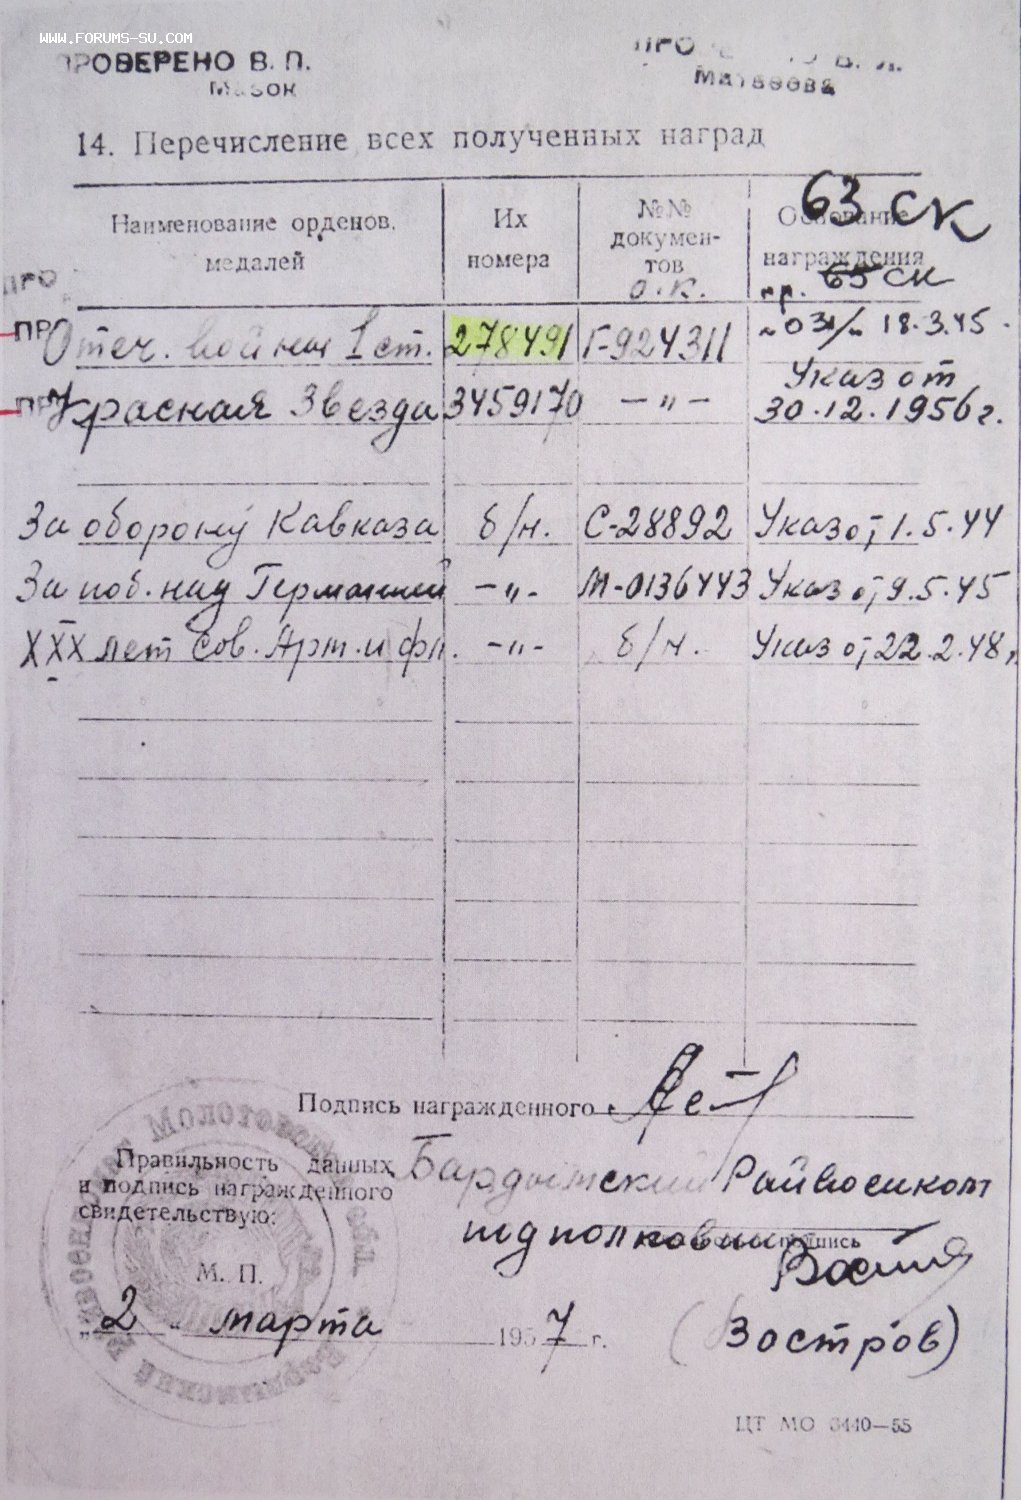 WWW.FORUMS-SU.COM
ПРОВЕРЕНО В. П.
Мазок
ПРО В. П.
Матвеева
14. Перечисление всех полученных наград
Наименование орденов, медалей Их номера №№ документов о.к. Основание награждения
63 СК
пр. 65 СК
ПРО
ПР Отеч. войны 1 ст. 278491 Г-924311 № 031/н 18.3.45.
ПР Красная Звезда 3459170 —„— Указ от 30.12.1956 г.
За оборону Кавказа б/н. С-28892 Указ от 1.5.44
За поб. над Германией —„— М-0136443 Указ от 9.5.45
XXX лет Сов. Арм. и фл. —„— б/н. Указ от 22.2.48 г.
Подпись награжденного
Правильность данных
и подпись награжденного
свидетельствую:
Бардымский Райвоенком
подполковник
подпись
М. П.
„2" марта 1957 г.
(Востров)
ЦТ МО 6440—55